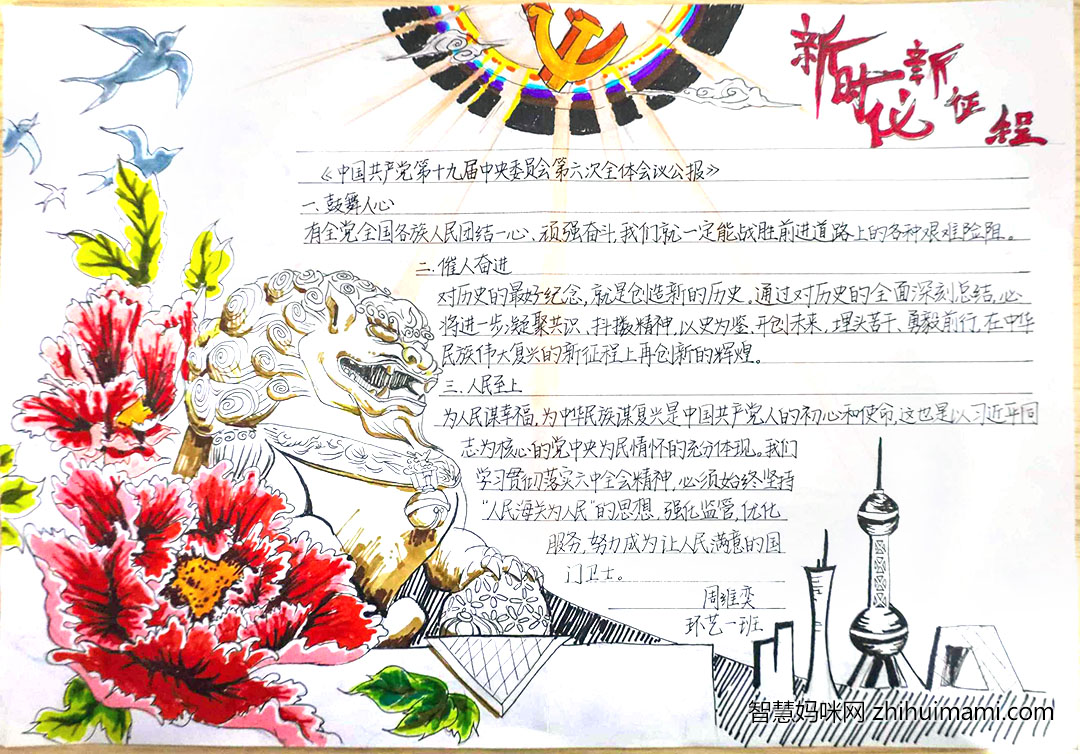 新时代新征程
《中国共产党第十九届中央委员会第六次全体会议公报》
一、鼓舞人心
有全党全国各族人民团结一心、顽强奋斗,我们就一定能战胜前进道路上的各种艰难险阻。
二.催人奋进
对历史的最好纪念,就是创造新的历史。通过对历史的全面深刻总结,必
将进一步凝聚共识、抖擞精神,以史为鉴、开创未来,埋头苦干、勇毅前行,在中华
民族伟大复兴的新征程上再创新的辉煌。
三.人民至上
为人民谋幸福,为中华民族谋复兴是中国共产党人的初心和使命,这也是以习近平同
志为核心的党中央为民情怀的充分体现。我们
学习贯彻落实六中全会精神,必须始终坚持
“人民海关为人民”的思想,强化监管,优化
服务,努力成为让人民满意的国
门卫士。
周维奕
环艺一班
智慧妈咪网 zhihuimami.com